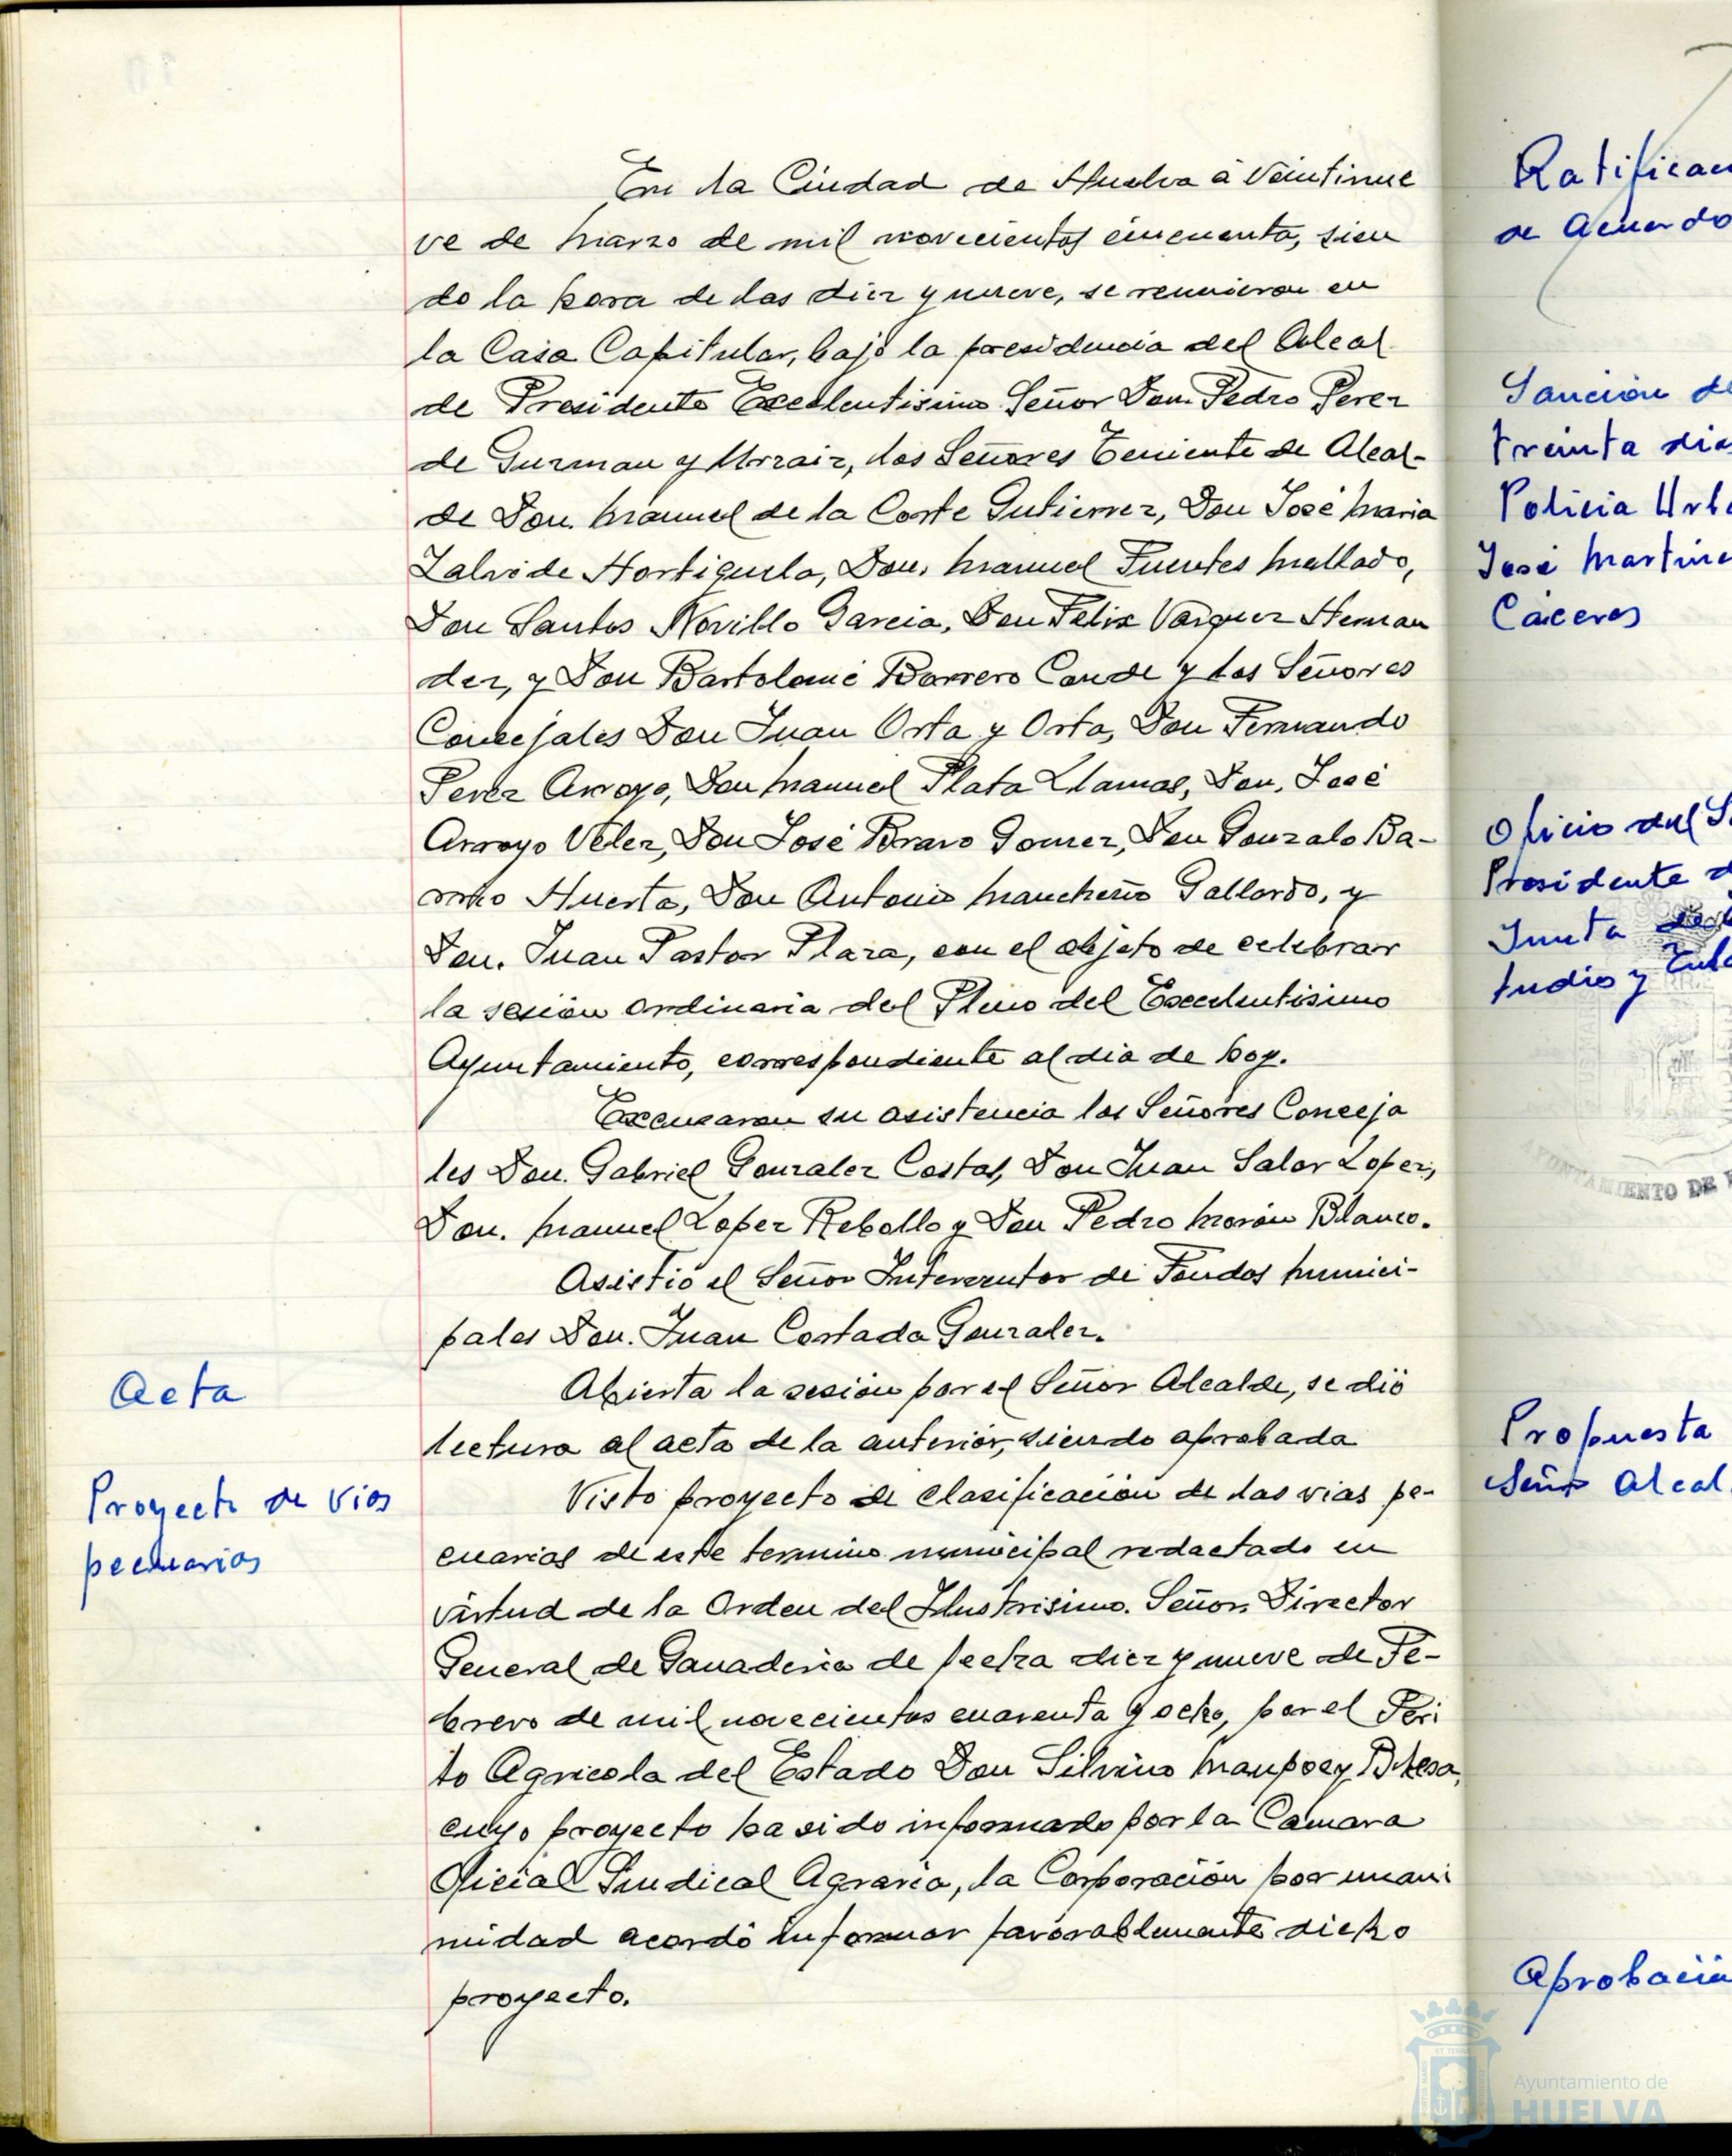 En la Ciudad de Huelva a Veintinue
ve de Marzo de mil novecientos cincuenta, sien
do la hora de las diez y nueve, se reunieron en
la Casa Capitular, bajo la presidencia del Alcal
de Presidente Excelentisimo Señor Don Pedro Perez
de Guzman y Urzaiz, los Señores Teniente de Alcal-
de Don Manuel de la Corte Gutierrez, Don José Maria
Zalvide Hortiguela, Don Manuel Fuentes Mallado,
Don Santos Novillo Garcia, Don Felix Vazquez Hernan
dez, y Don Bartolomé Borrero Conde y los Señores
Concejales Don Juan Orta y Orta, Don Fernando
Perez Arroyo, Don Manuel Plata Llamas, Don José
Arroyo Velez, Don José Bravo Gomez, Don Gonzalo Ba-
Huerta, Don Antonio Mancheño Gallardo, y
Don Juan Pastor Plaza, con el objeto de celebrar
la sesión ordinaria del Pleno del Excelentisimo
Ayuntamiento, correspondiente al dia de hoy.
Excusaron su asistencia los Señores Conceja
les Don Gabriel Gonzalez Costas, Don Juan Salor Lopez,
Don Manuel Lopez Rebollo y Don Pedro Morón Blanco.
Asistió el Señor Interventor de Fondos Munici-
pales Don Juan Contada Gonzalez.
Acta
Abierta la sesión por el Señor Alcalde, se dió
lectura al acta de la anterior, siendo aprobada
Proyecto de vias
pecuarias
Visto proyecto de clasificación de las vias pe-
cuarias de este termino municipal redactado en
virtud de la Orden del Ilustrisimo. Señor Director
General de Ganaderia de fecha diez y nueve de Fe-
brero de mil novecientos cuarenta y ocho, por el Peri
to Agricola del Estado Don Silvino Maupoey Blesa,
cuyo proyecto ha sido informado por la Camara
Oficial Sindical Agraria, la Corporación por unani
midad acordó informar favorablemente dicho
proyecto.
Ratificac
de acuerdo
Sanción de
treinta dias
Policia Urb
José Martine
Cáceres
Oficio del S
Presidente d
Junta de
tudio y
AYUNTAMIENTO DE
Propuesta
Señor Alcal
Aprobación
Ayuntamiento de
HUELVA